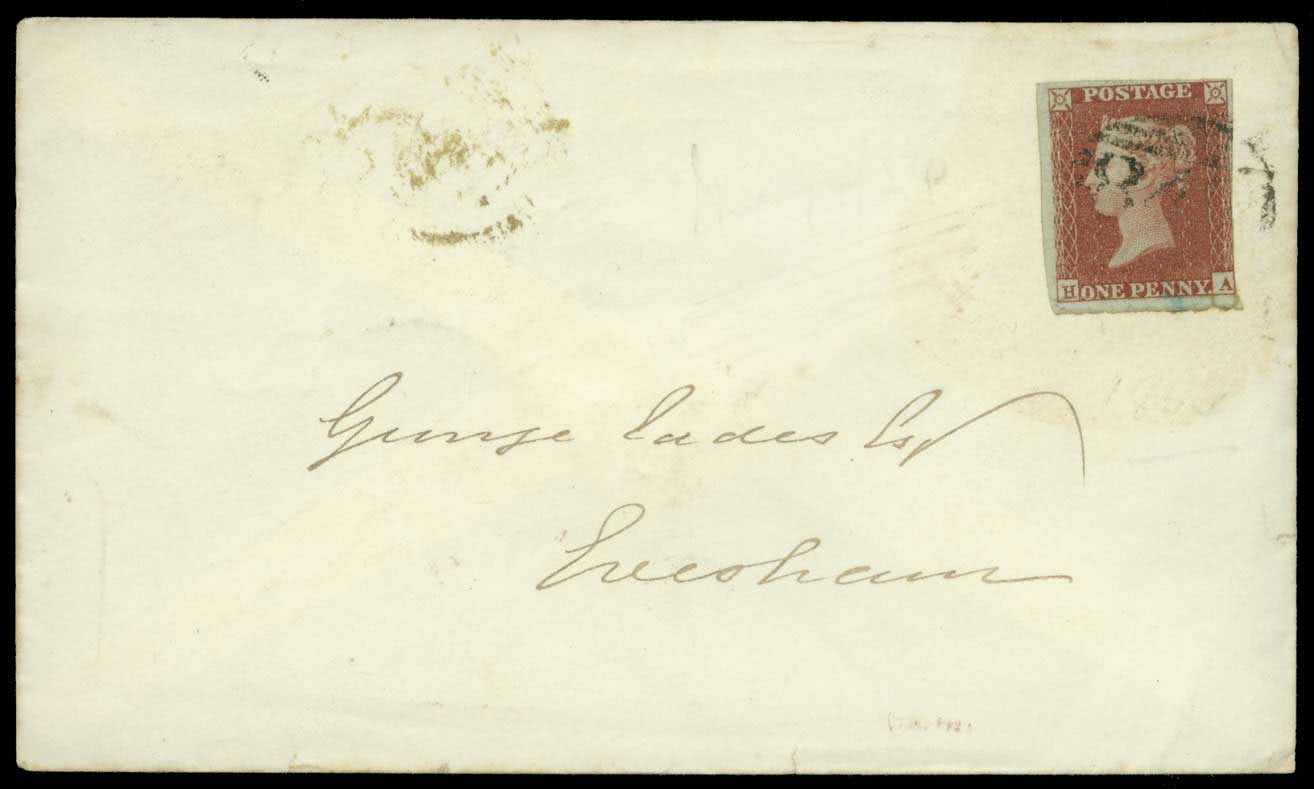 POSTAGE
H ONE PENNY. A
George Eades Esq
Evesham